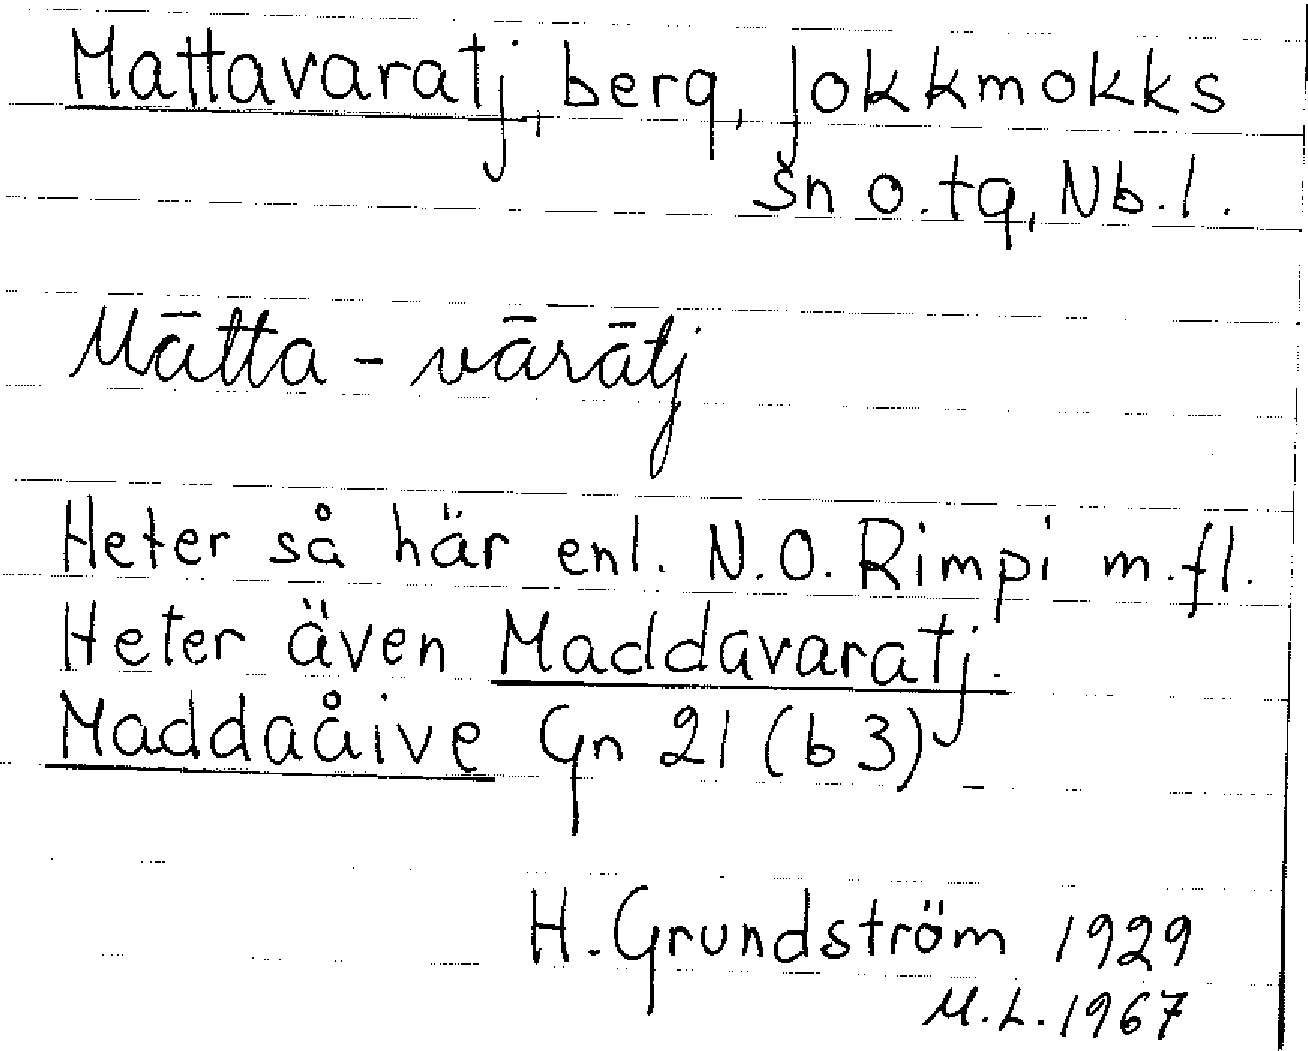 Mattavaratj, berg, Jokkmokks
sn o. tg, Nb. l.
Mātta - vārātj
Heter så här enl. N.O. Rimpi m.fl.
Heter även Maddavaratj.
Maddaåive Gn 21 (b 3)
H. Grundström 1929
M.L. 1967